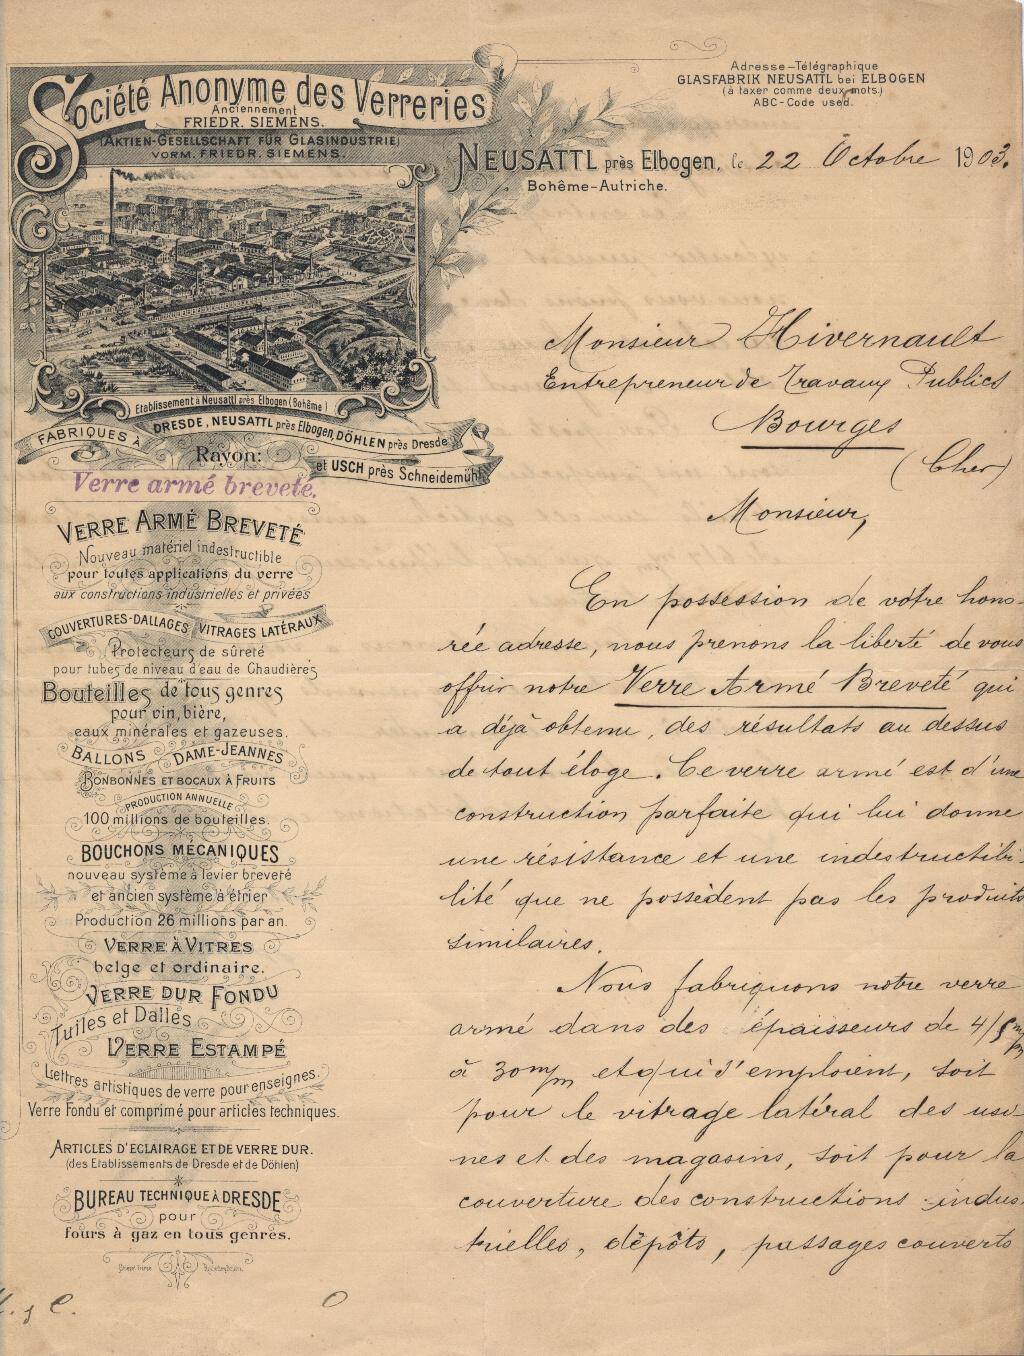 Société Anonyme des Verreries
Anciennement
FRIEDR. SIEMENS.
(AKTIEN-GESELLSCHAFT FÜR GLASINDUSTRIE)
VORM. FRIEDR. SIEMENS.
Adresse-Télégraphique
GLASFABRIK NEUSATTL bei ELBOGEN
(à taxer comme deux mots.)
ABC-Code used.
NEUSATTL près Elbogen, le 22 Octobre 1903.
Bohême-Autriche.
Etablissement à Neusattl près Elbogen (Bohême)
FABRIQUES À DRESDE, NEUSATTL près Elbogen, DÖHLEN près Dresde
et USCH près Schneidemühl
Rayon:
Verre armé breveté.
VERRE ARMÉ BREVETÉ
Nouveau matériel indestructible
pour toutes applications du verre
aux constructions industrielles et privées
COUVERTURES-DALLAGES VITRAGES LATÉRAUX
Protecteurs de sûreté
pour tubes de niveau d'eau de Chaudières
Bouteilles de tous genres
pour vin, bière,
eaux minérales et gazeuses.
BALLONS DAME-JEANNES
BONBONNES ET BOCAUX À FRUITS
PRODUCTION ANNUELLE
100 millions de bouteilles.
BOUCHONS MÉCANIQUES
nouveau système à levier breveté
et ancien système à étrier
Production 26 millions par an.
VERRE À VITRES
belge et ordinaire.
VERRE DUR FONDU
Tuiles et Dalles
VERRE ESTAMPÉ
Lettres artistiques de verre pour enseignes.
Verre Fondu et comprimé pour articles techniques.
ARTICLES D'ECLAIRAGE ET DE VERRE DUR.
(des Etablissements de Dresde et de Döhlen)
BUREAU TECHNIQUE À DRESDE
pour
fours à gaz en tous genres.
Monsieur Hivernault
Entrepreneur de Travaux Publics
Bourges
(Cher)
Monsieur,
En possession de vôtre hono-
rée adresse, nous prenons la liberté de vous
offrir notre Verre Armé Breveté qui
a déjà obtenu, des résultats au dessus
de tout éloge. Ce verre armé est d'une
construction parfaite qui lui donne
une résistance et une indestructibi-
lité que ne possèdent pas les produits
similaires.
Nous fabriquons notre verre
armé dans des épaisseurs de 4/5 m/m
à 30 m/m et qui s'emploient, soit
pour le vitrage latéral des usi-
nes et des magasins, soit pour la
couverture des constructions indus-
trielles, dépôts, passages couverts